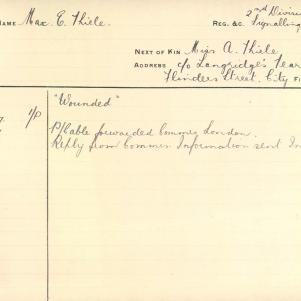 NAME Max E. Thiele
2nd Divisi
REG. &C. Signalling
NEXT OF KIN Miss A. Thiele
ADDRESS c/o Langridge's Tear
Flinders Street, City Fi
"Wounded"
7. 1/P
P/Cable forwarded Commrs London.
Reply from Commrs Information sent In